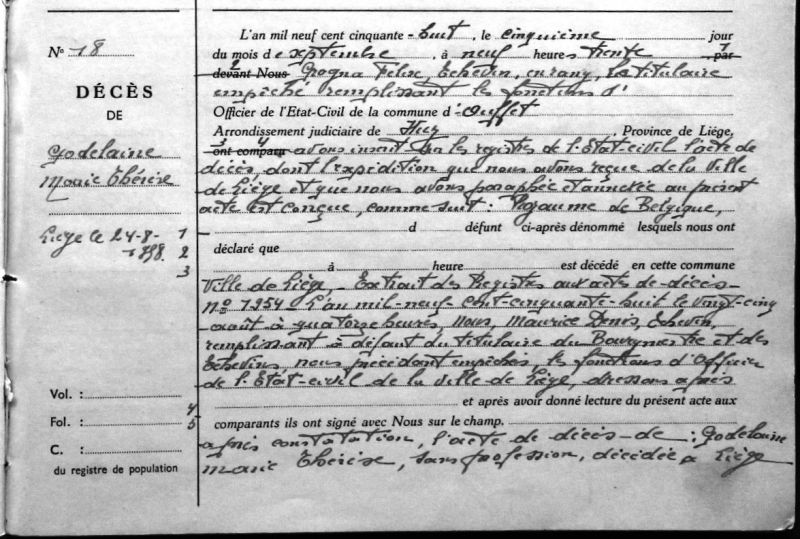 N° 18
DÉCÈS
DE
Godelaine
Marie Thérèse
Liège le 24-8-
1958
1
2
3
Vol. :
Fol. :
C. :
du registre de population
4
5
L'an mil neuf cent cinquante-huit, le cinquième jour
du mois de septembre, à neuf heures trente par
devant Nous Grogna Félix, Echevin, en rang, le titulaire
empêché remplissant les fonctions d'
Officier de l'Etat-Civil de la commune d'Ouffet
Arrondissement judiciaire de Huy, Province de Liège,
ont comparu avons inscrit sur les registres de l'Etat-civil l'acte de
décès, dont l'expédition que nous avons reçue de la Ville
de Liège et que nous avons paraphée et annexée au présent
acte est conçue, comme suit : Royaume de Belgique,
d défunt ci-après dénommé lesquels nous ont
déclaré que
à heure est décédé en cette commune
Ville de Liège, - Extrait des Registres aux actes de décès -
N° 1954 - L'an mil-neuf cent-cinquante-huit le vingt-cinq
août à quatorze heures, Nous, Maurice Denis, Echevin,
remplissant à défaut du titulaire du Bourgmestre et des
Echevins nous précédant empêchés, les fonctions d'Officier
de l'Etat-civil de la ville de Liège, dressons après
et après avoir donné lecture du présent acte aux
comparants ils ont signé avec Nous sur le champ.
après constatation, l'acte de décès de : Godelaine
Marie Thérèse, sans profession, décédée à Liège